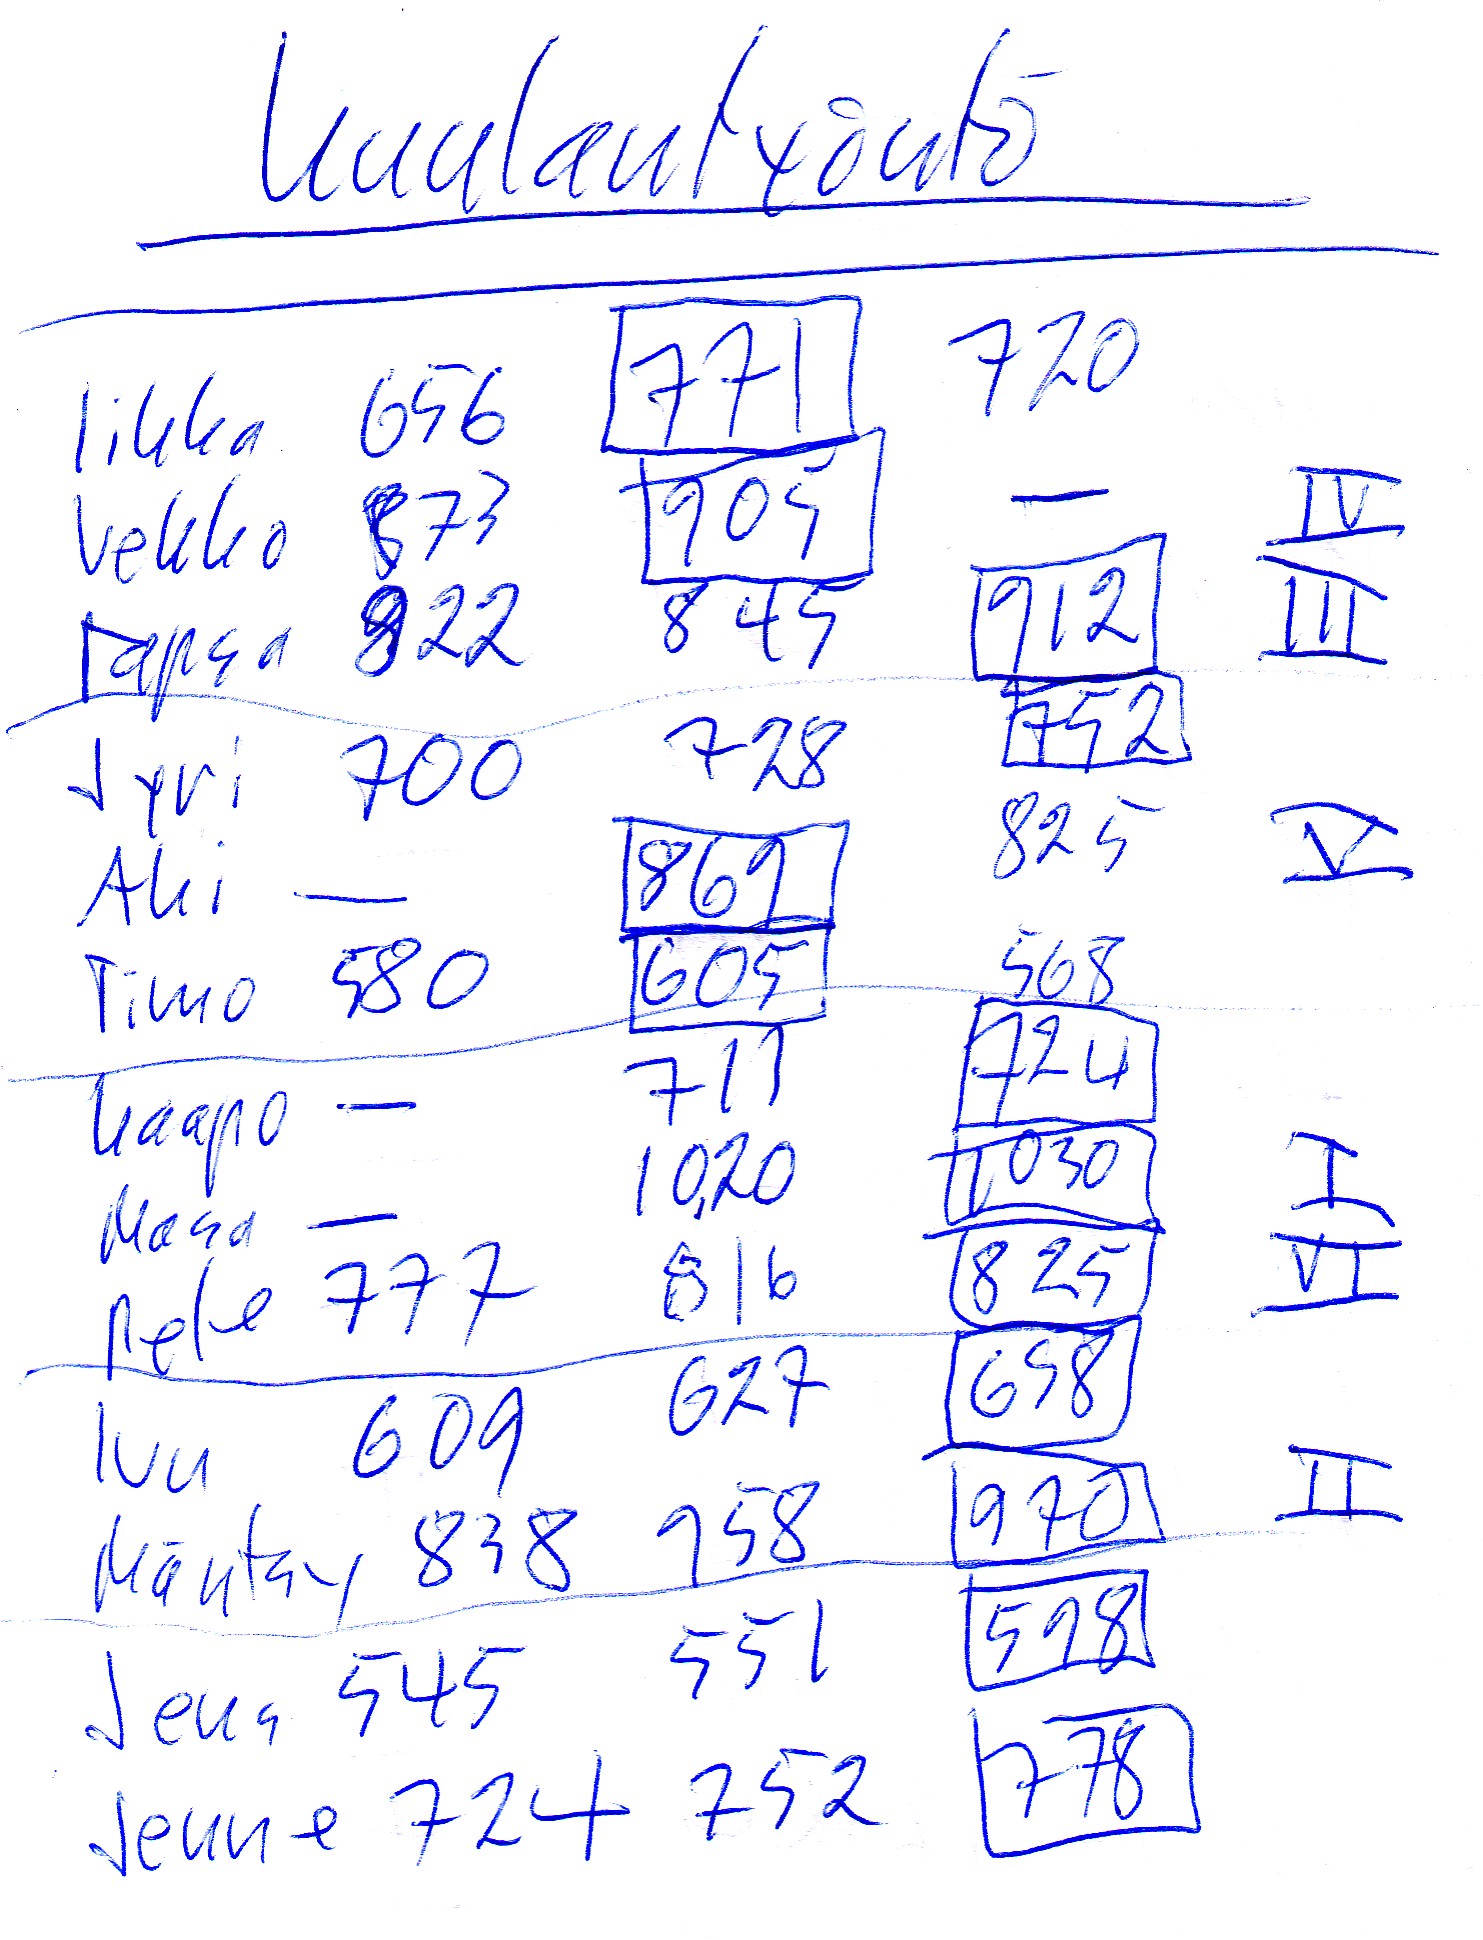 Kuulantyöntö
Iikka 656 771 720
Vekko 873 905 — IV
Tapsa 822 845 912 III
Jyri 700 728 752
Aki — 869 825 V
Timo 580 605 568
Kaapo — 711 724
Masa — 10,20 1030 I
Pete 777 816 825 VI
Ivu 609 627 658
Mäntsy 838 958 970 II
Jena 545 551 598
Jenne 724 752 778